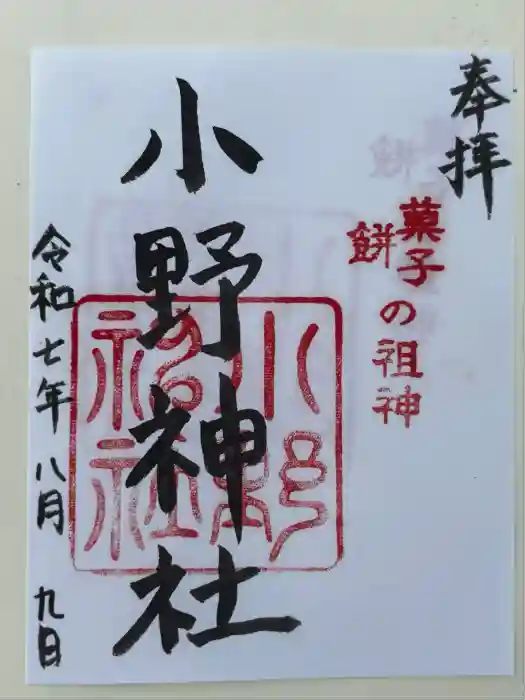 奉拝
菓子
餅
の祖神
小野神社
小野
神社
令和七年八月九日